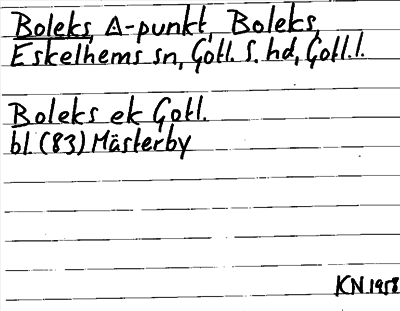 Boleks, Δ-punkt, Boleks,
Eskelhems sn, Gotl. S. hd, Gotl. l.
Boleks ek Gotl.
bl. (83) Mästerby
KN 1958